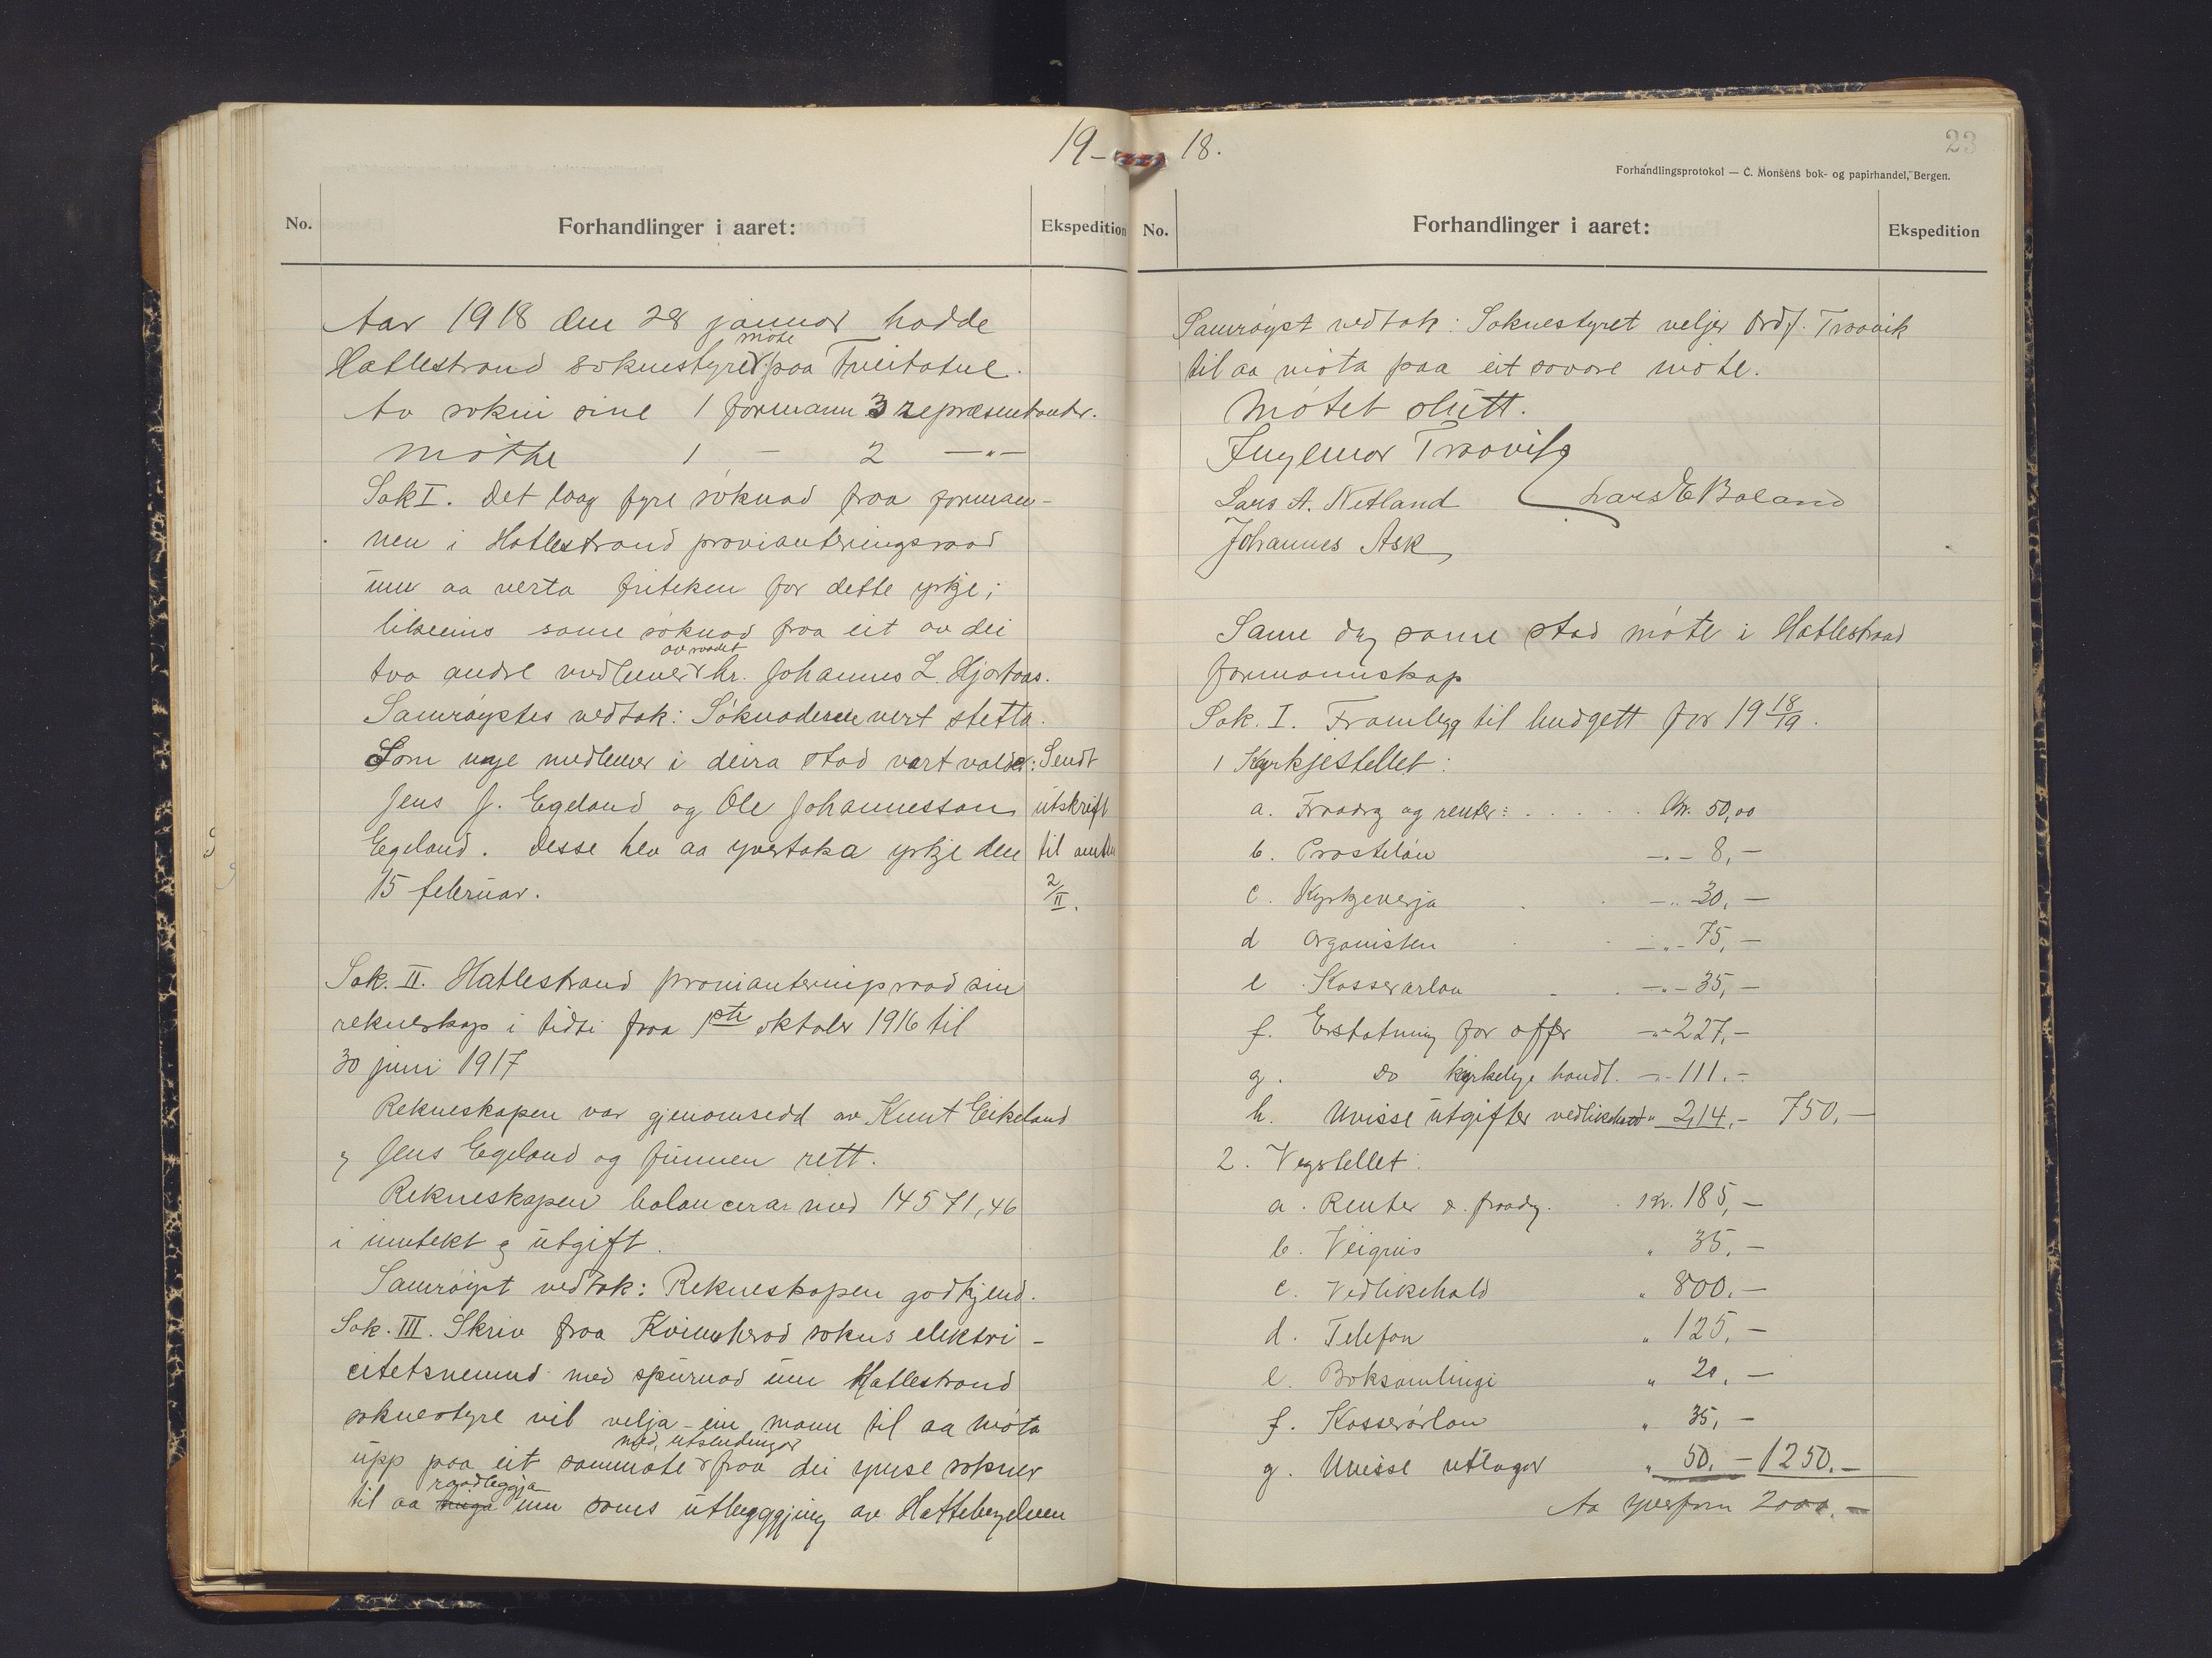 19-
No.
Forhandlinger i aaret:
Ekspedition
Aar 1918 den 28 januar hadde
Hatlestrand soknestyre møte paa Tveitatue.
Av sokni sine 1 formann 3 representantar.
Møtte 1 - 2 -"-
Sak I. Det laag fyre søknad fraa forman-
nen i Hatlestrand provianteringsraad
um aa verta friteken for dette yrkje;
likeeins same søknad fraa eit av dei
tvo andre medlemer av raadet hr. Johannes L. Hjortaas.
Samrøystes vedtak: Søknadene vert stetta.
Som nye medlemer i deira stad vart valde: Sendt
Jens J. Egeland og Ole Johannesson utskrift
Egeland. Desse hev aa yvertaka yrkje den til
15 februar. 2/II.
Sak. II. Hatlestrand provianteringsraad sin
rekneskap i tidi fraa 1ste oktober 1916 til
30 juni 1917
Rekneskapen var gjenomsedd av Knut Eikeland
og Jens Egeland og funnen rett.
Rekneskapen balancerar med 14571,46
i inntekt og utgift.
Samrøyst vedtak: Rekneskapen godkjend.
Sak. III. Skriv fraa Kvinnherad sokns elektri-
citetsnemnd med spurnad um Hatlestrand
soknestyre vil velja ein mann til aa møta
upp paa eit sammøte med utsendingar fraa dei ymse sokner
til aa raadleggja um sams utbyggjing av Hattebergelven
18.
23
Forhandlingsprotokol — C. Monsens bok- og papirhandel, Bergen.
No.
Forhandlinger i aaret:
Ekspedition
Samrøyst vedtak: Soknestyret veljer Ordf. Traavik
til aa møta paa eit sovore møte.
Møtet slutt.
Ingemar Traavik
Lars A. Netland Lars E Baland
Johannes Ask
Same dag same stad møte i Hatlestrand
formannskap
Sak. I. Framlegg til budgett for 1918/19.
1 Kyrkjestellet:
a. Fraadrg og renter: . . . . . Kr. 50,00
b. Prosteløn -"- 8,-
c. Kyrkjeverja . . -"- 30,-
d Organisten . . -"- 75,-
e Kasserarløn . . -"- 35,-
f. Erstatning for offer -"- 227,-
g. Do kyrkelege handl. -"- 111.-
h. Uvisse utgifter vedlikehald " 214,- 750,-
2. Vegstellet:
a. Renter o. fraadrg. . Kr. 185,-
b. Veigrus " 35,-
c. Vedlikehald " 800.-
d. Telefon " 125,-
e. Boksamlingi " 20,-
f. Kasserarløn " 35,-
g. Uvisse utlagor " 50.- 1250.-
Aa yverføra 2000.-